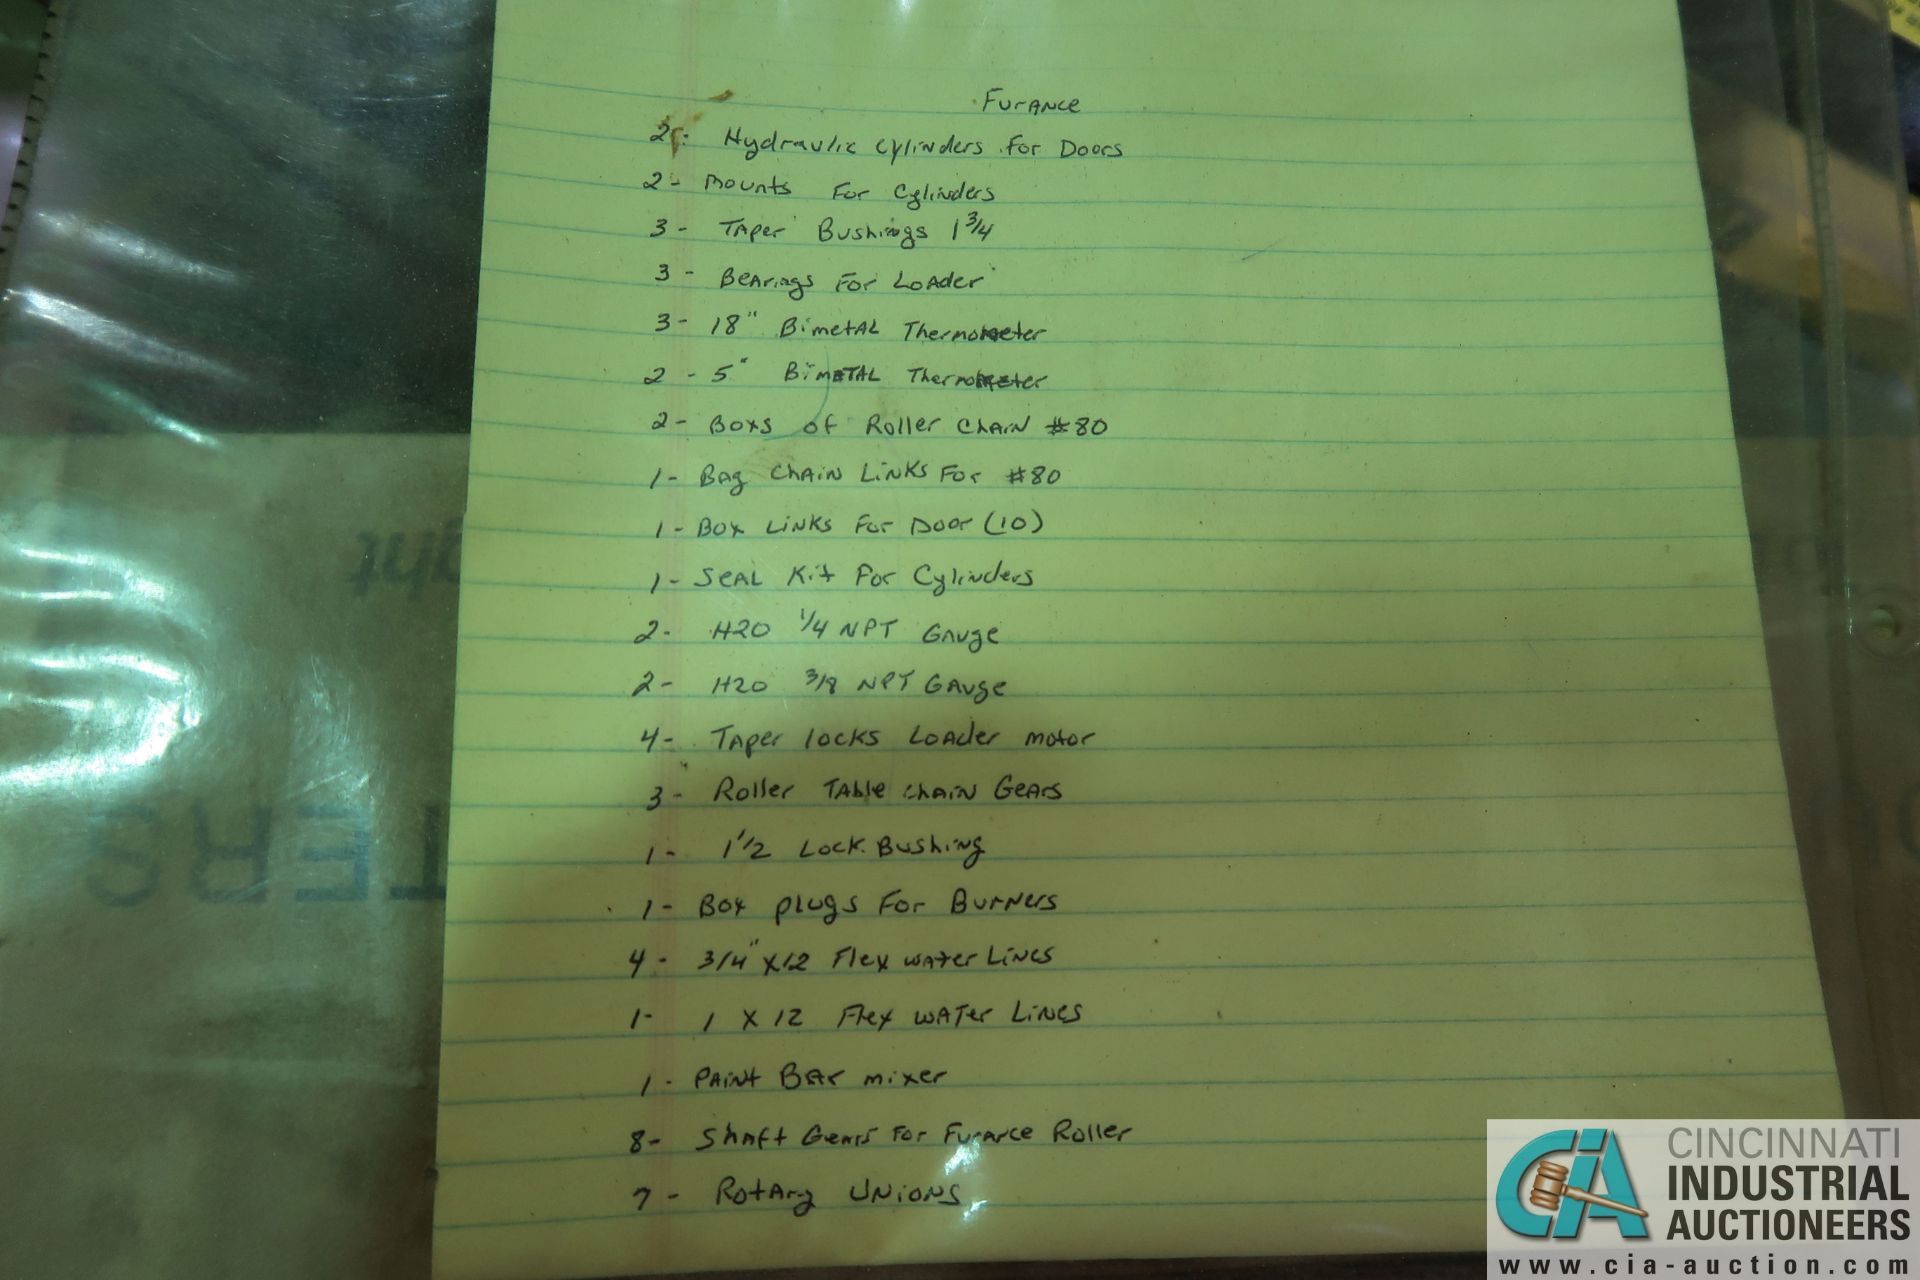 Furance
2- Hydraulic Cylinders For Doors
2- Mounts For Cylinders
3- Taper Bushings 1 3/4
3- Bearings For Loader
3- 18" Bimetal Thermometer
2- 5" Bimetal Thermometer
2- Boxs of Roller Chain #80
1- Bag Chain Links For #80
1- Box Links For Door (10)
1- Seal Kit For Cylinders
2- H20 1/4 NPT Gauge
2- H20 3/8 NPT Gauge
4- Taper locks Loader motor
3- Roller Table Chain Gears
1- 1 1/2 Lock Bushing
1- Box Plugs For Burners
4- 3/4" x12 Flex water Lines
1- 1 X 12 Flex water Lines
1- Paint Bar mixer
8- Shaft Gears For Furance Roller
7- Rotary Unions
CIA CINCINNATI
INDUSTRIAL
AUCTIONEERS
www.cia-auction.com